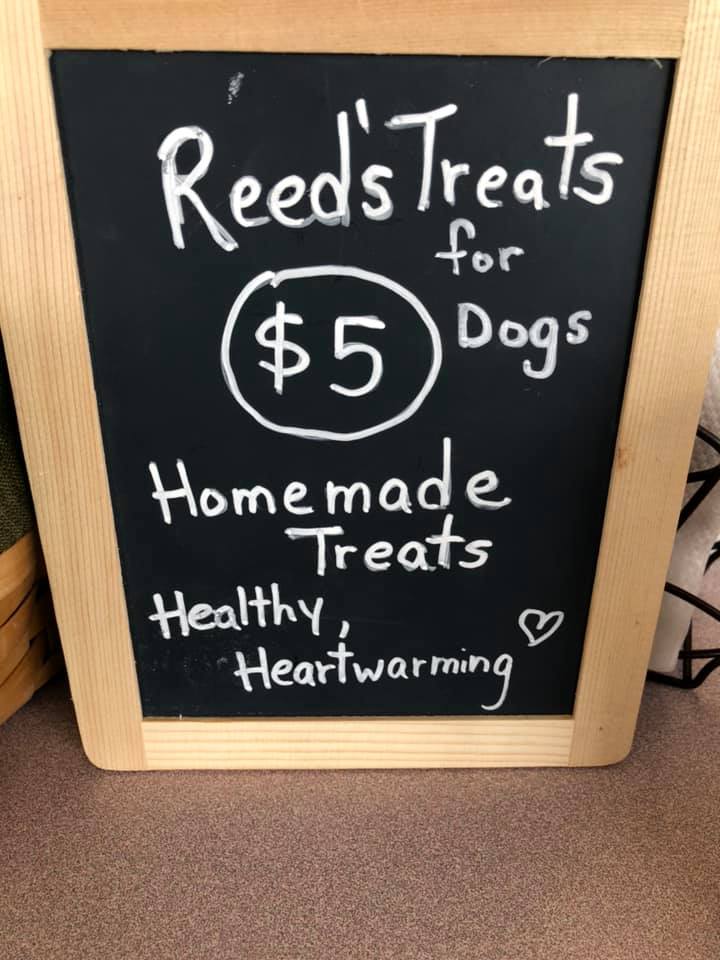 Reed's Treats
for
Dogs
$5
Homemade
Treats
Healthy,
Heartwarming